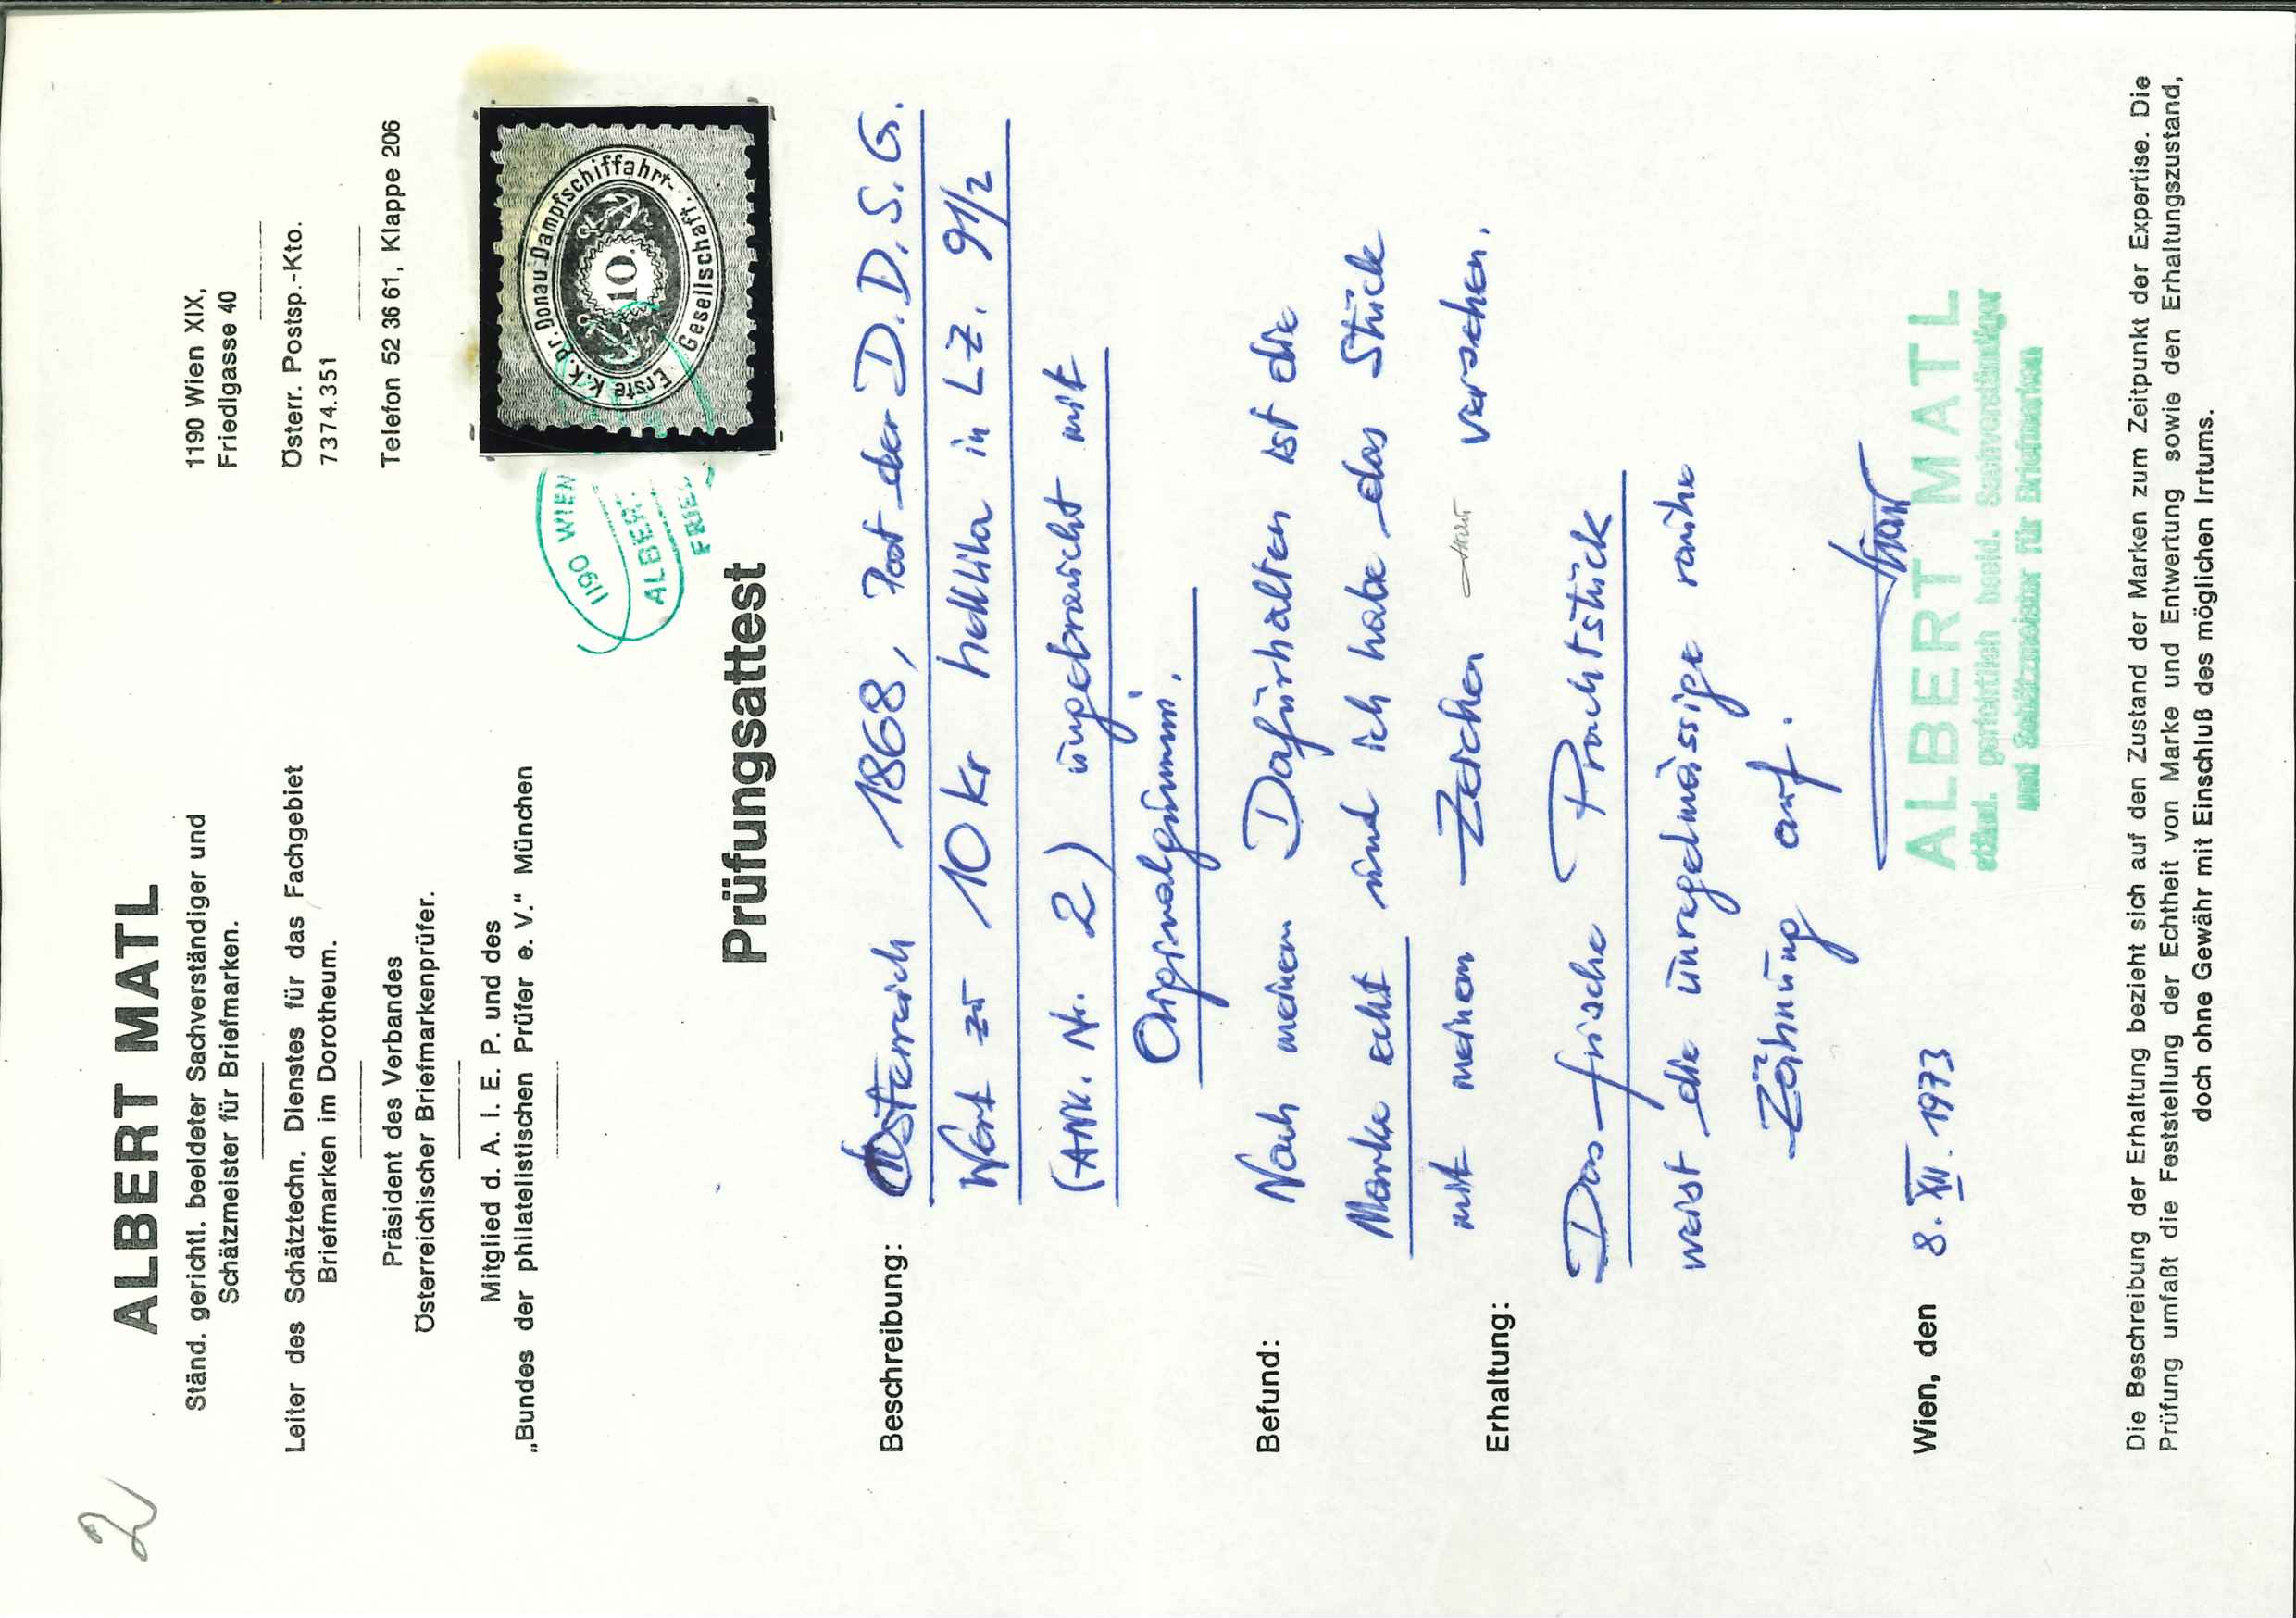 2
ALBERT MATL
Ständ. gerichtl. beeideter Sachverständiger und
Schätzmeister für Briefmarken.
Leiter des Schätztechn. Dienstes für das Fachgebiet
Briefmarken im Dorotheum.
Präsident des Verbandes
Österreichischer Briefmarkenprüfer.
Mitglied d. A. I. E. P. und des
„Bundes der philatelistischen Prüfer e. V." München
1190 Wien XIX,
Friedlgasse 40
Österr. Postsp.-Kto.
7374.351
Telefon 52 36 61, Klappe 206
Erste K.K. pr. Donau Dampfschiffahrt-
Gesellschaft.
10.
1190 WIEN
ALBERT
FRIEL
Prüfungsattest
Beschreibung: Österreich 1868, Post der D.D.S.G.
Wert zu 10 kr helllila in LZ. 9 1/2
(ANK. Nr. 2) ungebraucht mit
Originalgummi.
Befund: Nach meinem Dafürhalten ist die
Marke echt und ich habe das Stück
mit meinen Zeichen versehen.
Erhaltung:
Das frische Prachtstück
weist die unregelmässige rauhe
Zähnung auf.
Wien, den 8. XII. 1973
ALBERT MATL
ständ. gerichtlich beeid. Sachverständiger
und Schätzmeister für Briefmarken
Die Beschreibung der Erhaltung bezieht sich auf den Zustand der Marken zum Zeitpunkt der Expertise. Die
Prüfung umfaßt die Feststellung der Echtheit von Marke und Entwertung sowie den Erhaltungszustand,
doch ohne Gewähr mit Einschluß des möglichen Irrtums.